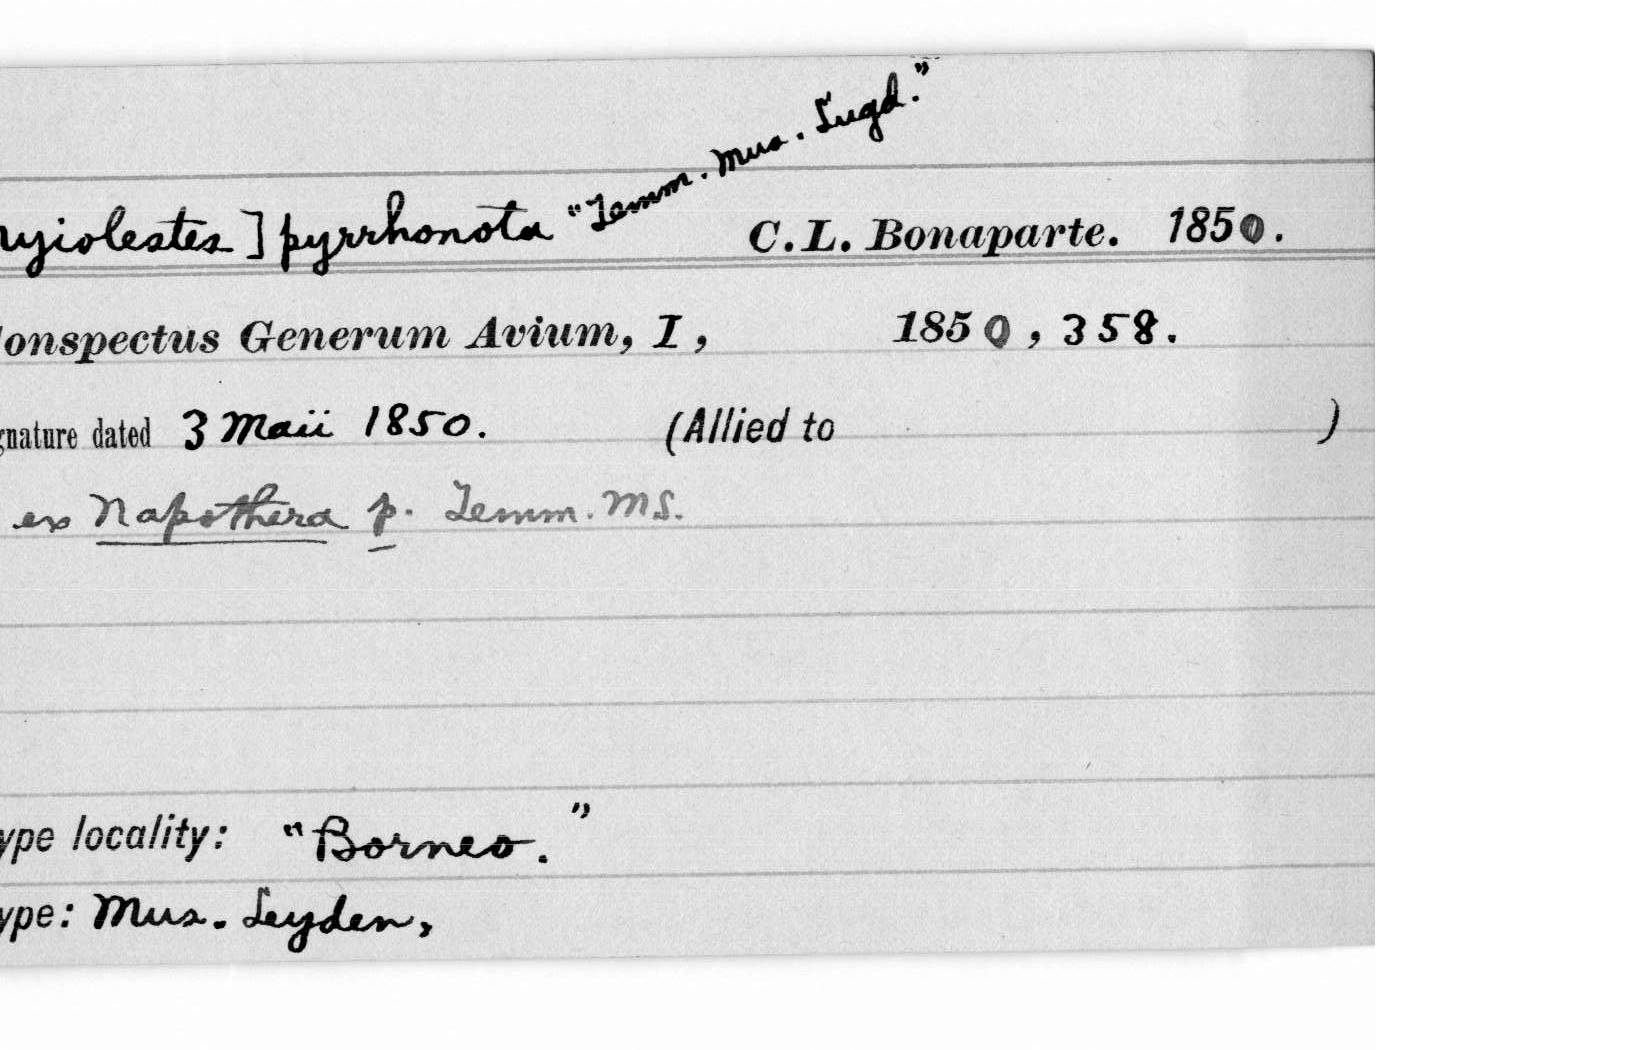 ryiolestes] pyrrhonota "Temm. Mus. Lugd." C.L. Bonaparte. 1850.
onspectus Generum Avium, I, 1850, 358.
gnature dated 3 Maii 1850. (Allied to )
ex Napothera p. Temm. MS.
ype locality: "Borneo."
ype: Mus. Leyden,